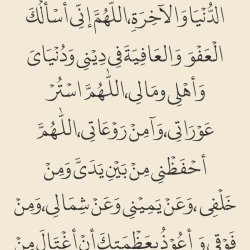 الدُّنْيَا وَالْآخِرَةِ، اللَّهُمَّ إِنِّي أَسْأَلُكَ
الْعَفْوَ وَالْعَافِيَةَ فِي دِيْنِي وَدُنْيَايَ
وَأَهْلِي وَمَالِي، اللَّهُمَّ اسْتُرْ
عَوْرَاتِي، وَآمِنْ رَوْعَاتِي، اللَّهُمَّ
احْفَظْنِي مِنْ بَيْنِ يَدَيَّ وَمِنْ
خَلْفِي، وَعَنْ يَمِيْنِي وَعَنْ شِمَالِي، وَمِنْ
فَوْقِي وَ أَعُوْذُ بِعَظَمَتِكَ أَنْ أُغْتَالَ مِنْ